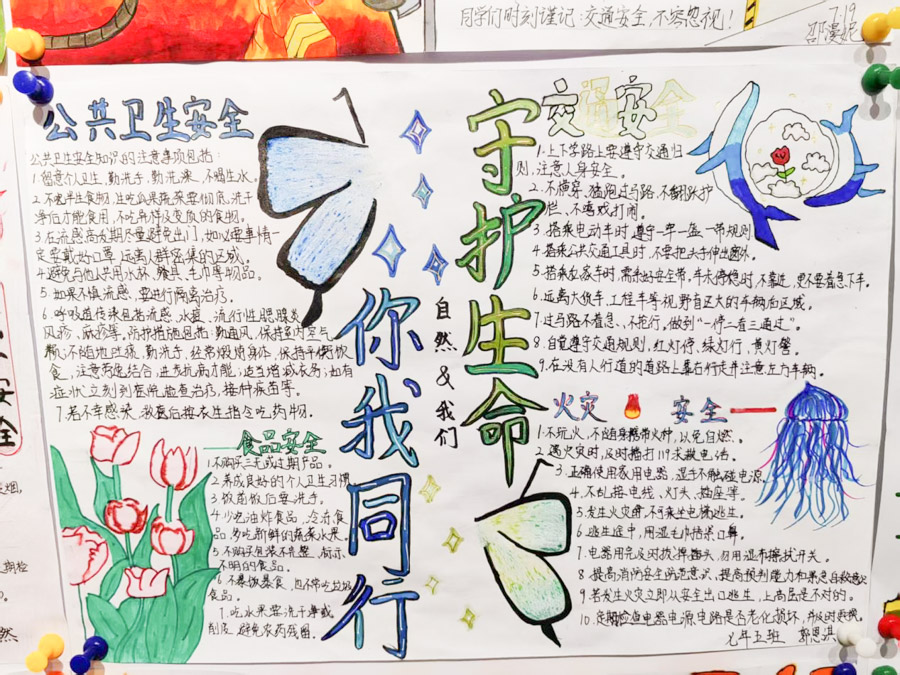 同学们时刻谨记:交通安全,不容忽视!
7.19
邵漫妮
公共卫生安全
公共卫生安全知识的注意事项包括:
1.留意个人卫生,勤洗手,勤洗澡、不喝生水。
2.不吃生食物,生吃瓜果蔬菜要彻底洗干
净后才能食用,不吃弄样及变质的食物。
3.在流感高发期尽量避免出门,如必要事情一
定要戴好口罩,远离人群密集的区域。
4.避免与他人共用水杯、餐具、毛巾等物品。
5.如果不慎流感,要进行隔离治疗。
6.呼吸道传染包括流感、水痘、流行性腮腺炎
风疹、麻疹等。防护措施包括:勤通风,保持室内空气
不随地吐痰,勤洗手,经常锻炼身体,保持平衡饮
食,注意劳逸结合,进步抗病才能,适当增减衣务;如有
症状立刻到医院检查治疗,接种疫苗等。
7.若不幸感染,就医后按医生指令吃药物.
食品安全
1.不购买三无或过期产品。
2.养成良好的个人卫生习惯
3.饮前饭后要洗手。
4.少吃油炸食品,冷冻食
品,多吃新鲜的蔬菜水果。
5.不购买包装不完整、标示
不明的食品。
6.不暴饮暴食,也不常吃垃圾
食品。
7.吃水果要洗干净或
削皮,避免农药残留.
守护生命
你我同行
自然&我们
交通安全
1.上下学路上要遵守交通归
则,注意人身安全。
2.不横穿、猛跑过马路,不翻跃护
栏、不嘻戏打闹。
3.搭乘电动车时遵守一车一盔一带规则
4.搭乘公共交通工具时,不要把头手伸出窗体.
5.搭乘私家车时,需系好安全带,车未停稳时,不靠近,更不要着急下车.
6.远离大货车,工程车等视野盲区大的车辆的区域.
7.过马路不着急、不抢行,做到“一停二看三通过”.
8.自觉遵守交通规则,红灯停、绿灯行、黄灯警.
9.在没有人行道的道路上靠右行走并注意上方车辆.
火灾 安全
1.不玩火,不随身携带火种,以免自燃。
2.遇火灾时,及时拨打119求救电话。
3.正确使用家用电器,湿手不触碰电源.
4.不乱接电线、灯头、插座等。
5.发生火灾时,不乘坐电梯逃生。
6.逃生途中,用湿毛巾捂紧口鼻。
7.电器用完及时拔掉插头,勿用湿布擦拭开关。
8.提高消防安全防范意识、提高预判能力和紧急自救意识
9.若发生火灾立即从安全出口逃生,上高层是不对的。
10.定期检查电器电源、电路是否老化损坏,并及时更换。
七年五班 郭思淇